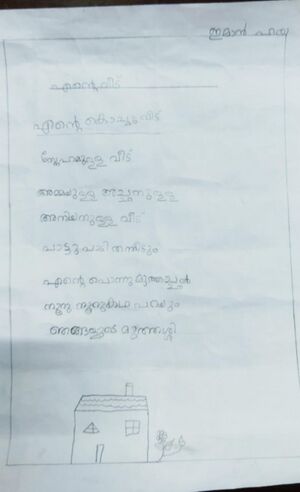 ഇമാൻ ഹയ
എന്റെ വീട്
എന്റെ കൊച്ചു വീട്
സ്നേഹമുള്ള വീട്
അമ്മയുള്ള അച്ഛനുള്ള
അനിയനുള്ള വീട്
പാട്ടു പാടി തന്നിടും
എന്റെ പൊന്നു മുത്തച്ഛൻ
നൂറു നൂറു കഥ പറയും
മുത്തശ്ശി